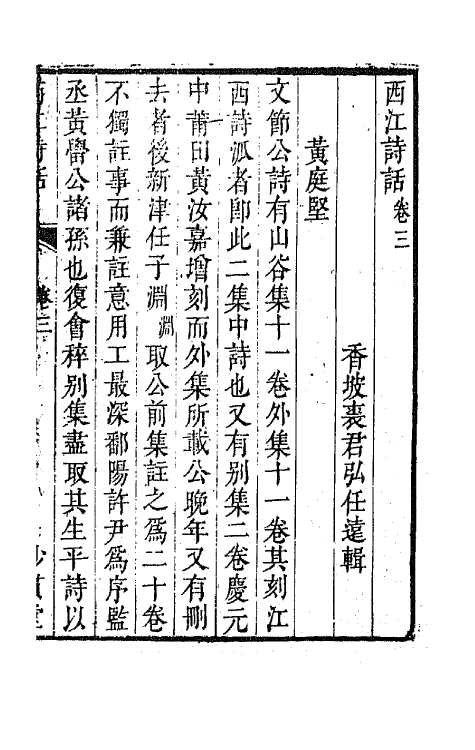 西江詩話卷三
香坡裘君弘任遠輯
黃庭堅
文節公詩有山谷集十一卷外集十一卷其刻江
西詩派者卽此二集中詩也又有别集二卷慶元
中莆田黃汝嘉增刻而外集所載公晚年又有刪
去者後新津任子淵淵取公前集註之爲二十卷
不獨註事而兼註意用工最深鄱陽許尹爲序監
丞黃㽦公諸孫也復會稡别集盡取其生平詩以
西江詩話 卷三